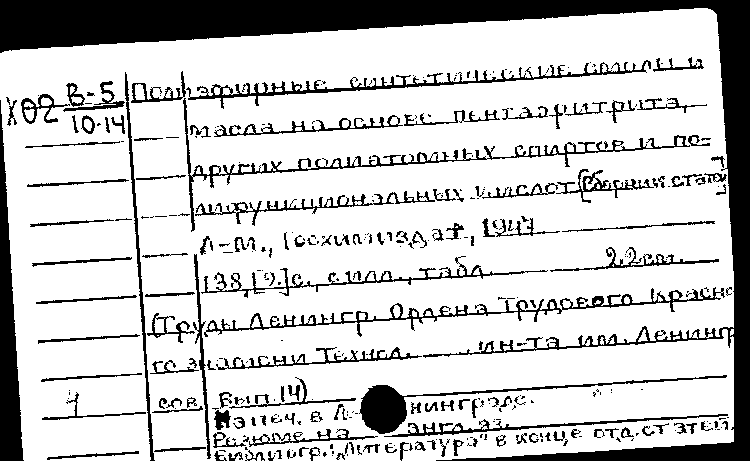 ХѲ2 В-5
10-14
Полиэфирные синтетические смолы и
масла на основе пентаэритрита,
других полиатомных спиртов и по-
лифункциональных кислот [Сборник статей]
Л-М., Госхимиздат, 1947
138,[2.]с., с илл., табл. 22см.
(Труды Ленингр. Ордена Трудового Красно
го знамени Технол. ин-та им. Ленингр
4 сов. Вып. 14)
Напеч. в Ленинграде.
Резюме на англ. яз.
Библиогр.: "Литература" в конце отд. статей.